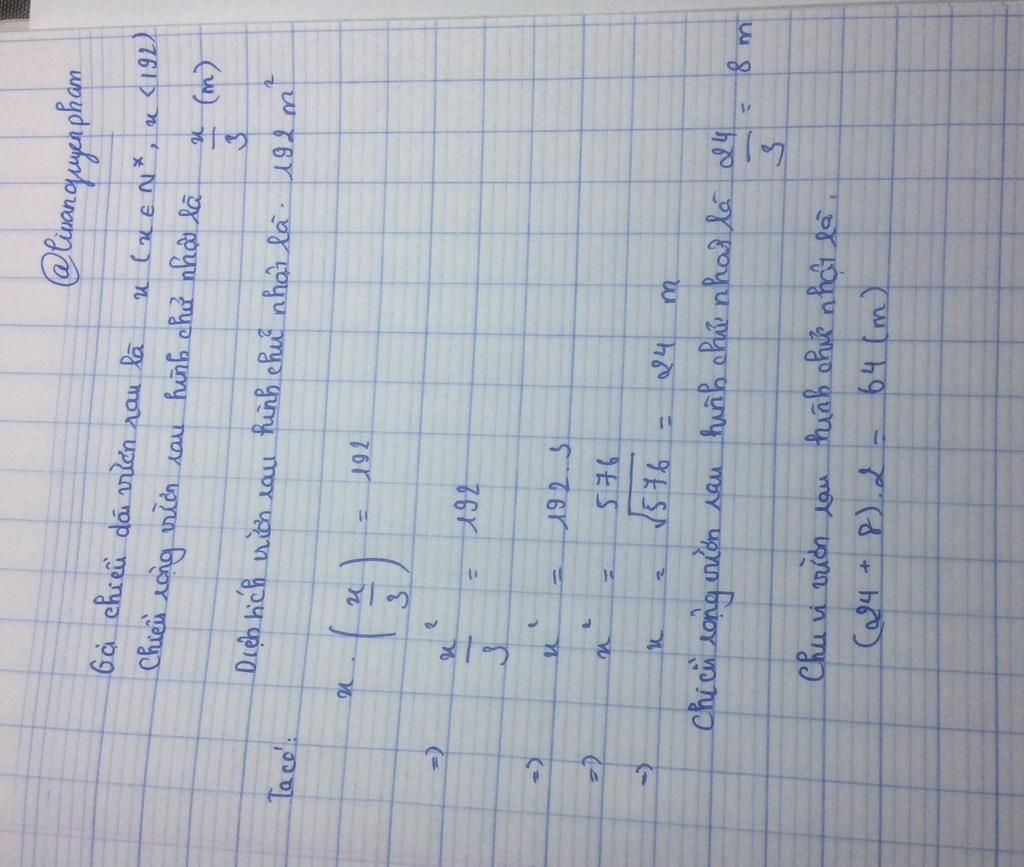 @linanguyenpham
Gọi chiều dài vườn rau là x (x ∈ N*, x < 192)
Chiều rộng vườn rau hình chữ nhật là x/3 (m)
Diện tích vườn rau hình chữ nhật là: 192 m²
Ta có:
x . (x/3) = 192
=> x²/3 = 192
=> x² = 192 . 3
=> x² = 576
=> x = √576 = 24 m
Chiều rộng vườn rau hình chữ nhật là 24/3 = 8 m
Chu vi vườn rau hình chữ nhật là.
(24 + 8).2 = 64 (m)